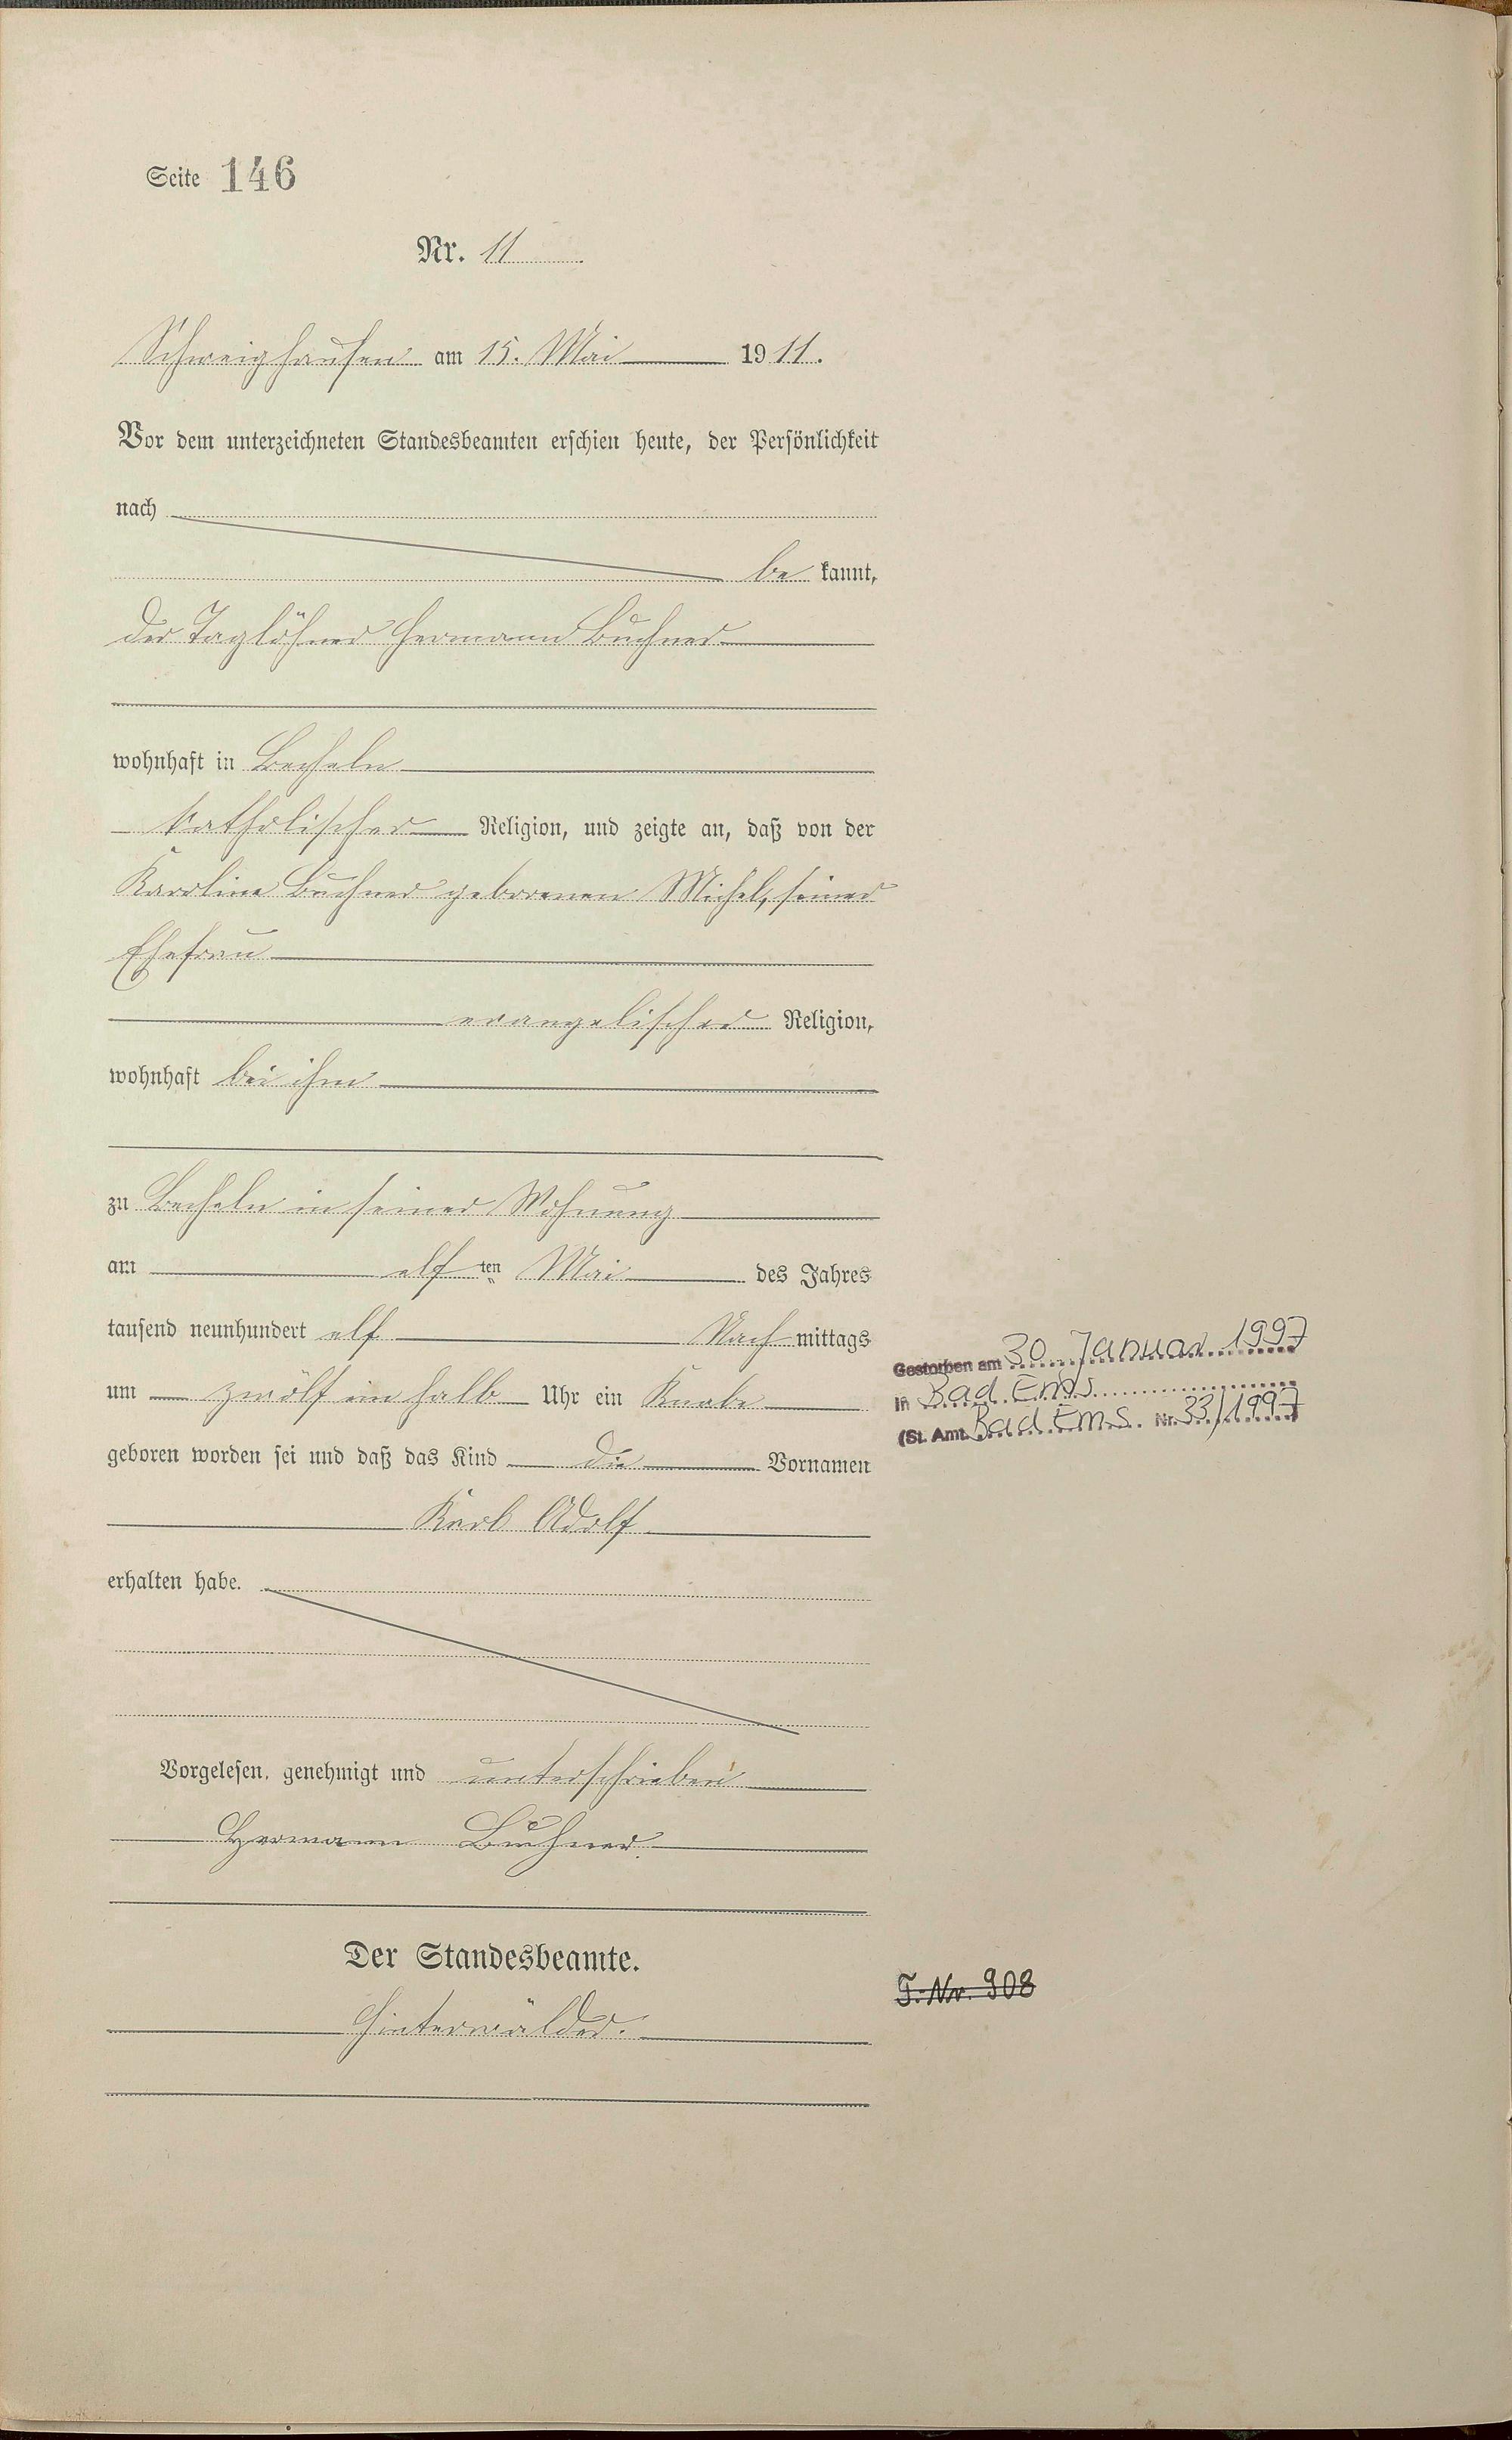 Seite 146
Nr. 11
Schweighausen am 15. Mai 1911.
Vor dem unterzeichneten Standesbeamten erschien heute, der Persönlichkeit
nach
be kannt,
der Taglöhner Hermann Buchner
wohnhaft in Becheln
katholischer Religion, und zeigte an, daß von der
Karoline Buchner geborenen Michel, seiner
Ehefrau
evangelischer Religion,
wohnhaft bei ihm
zu Becheln in seiner Wohnung
am elf ten Mai des Jahres
tausend neunhundert elf Nach mittags
um zwölf ein halb Uhr ein Knabe
geboren worden sei und daß das Kind die Vornamen
Karl Adolf
erhalten habe.
Vorgelesen, genehmigt und unterschrieben
Hermann Buchner
Der Standesbeamte.
Hinterwälder.
Gestorben am 30. Januar 1997
in Bad Ems
(St. Amt Bad Ems Nr. 33/1997)
J.-Nr. 908